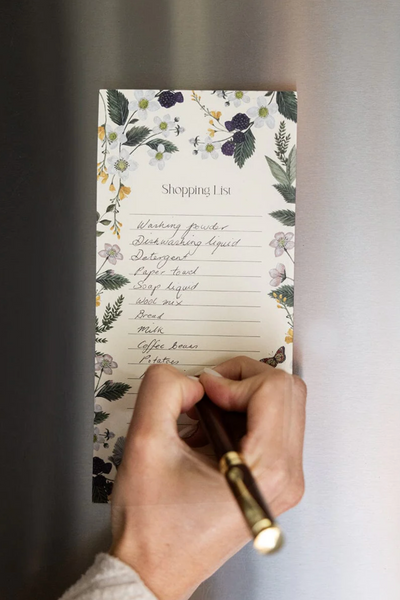 Shopping List
Washing powder
Dishwashing liquid
Detergent
Paper towel
Soap liquid
Wool mix
Bread
Milk
Coffee beans
Potatoes